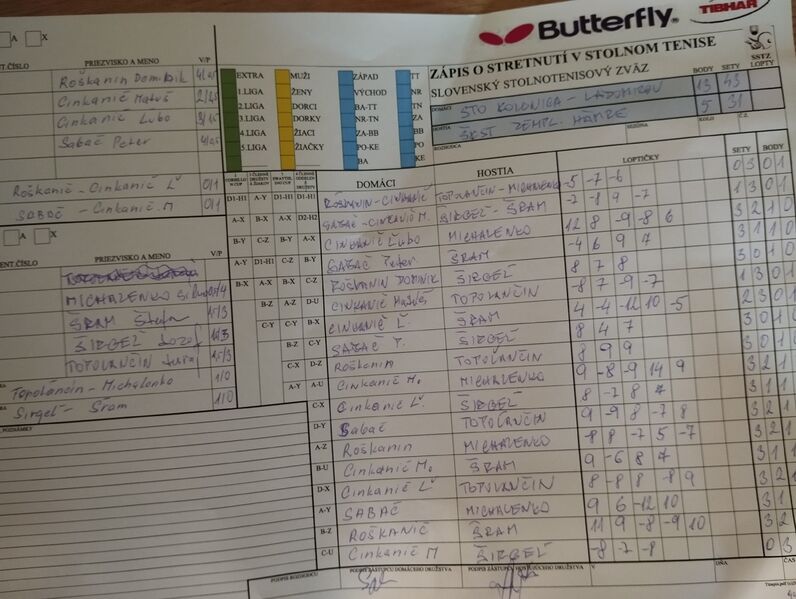 Butterfly
TIBHAR
ZÁPIS O STRETNUTÍ V STOLNOM TENISE
SLOVENSKÝ STOLNOTENISOVÝ ZVÄZ
SSTZ
BODY SETY LOPTY
DOMÁCI STO KOLONICA - LADOMIROV 13 43
HOSTIA ŠKST ZEMPL. HÁMRE 5 31
ROZHODCA SEZÓNA KOLO Č.Z.
A X
PRIEZVISKO A MENO V/P
Roškanin Dominik
Cinkanič Matúš
Cinkanič Ľubo
Sabač Peter
Roškanič - Cinkanič Ľ 0/1
SABAČ - Cinkanič M 0/1
A X
PRIEZVISKO A MENO V/P
MICHALENKO
ŠRAM Štefan
ŠIRGEĽ Jozef
TOPOĽANČIN Juraj
Topoľančin - Michalenko 1/0
Širgeľ - Šram 1/0
POZNÁMKY
EXTRA MUŽI ZÁPAD TT
1.LIGA ŽENY VÝCHOD NR
2.LIGA DORCI BA-TT TN
3.LIGA DORKY NR-TN ZA
4.LIGA ŽIACI ZA-BB BB
5.LIGA ŽIAČKY PO-KE PO
BA KE
DOMÁCI HOSTIA LOPTIČKY SETY BODY
D1-H1 A-Y D1-H1 D1-H1 ROŠKANIN - CINKANIČ Ľ TOPOĽANČIN - MICHALENKO -5 -7 -6 0 3 0 1
A-X B-X A-X D2-H2 SABAČ - CINKANIČ M. ŠIRGEĽ - ŠRAM -7 -8 9 -7 1 3 0 1
B-Y C-Z B-Y A-X CINKANIČ Ľubo MICHALENKO 12 8 -9 -8 6 3 2 1 0
A-Y D1-H1 C-Z B-Y SABAČ Peter ŠRAM -4 6 9 7 3 1 1 0
B-X A-X B-X C-Z ROŠKANIN DOMINIK ŠIRGEĽ 8 7 8 3 0 1 0
B-Z A-Z D-U CINKANIČ Matúš TOPOĽANČIN -8 7 -9 -7 1 3 0 1
C-Y C-Y B-X CINKANIČ Ľ. ŠRAM 4 -4 -12 10 -5 2 3 0 1
B-Z C-Y SABAČ P. ŠIRGEĽ 8 4 7 3 0 1 0
C-X D-Z Roškanin TOPOĽANČIN 8 9 9 3 0 1 0
A-Y A-U Cinkanič M. MICHALENKO 9 -8 -9 14 9 3 2 1
C-X Cinkanič Ľ ŠIRGEĽ 8 -7 8 7 3 1 1
D-Y Sabač TOPOĽANČIN 9 -9 8 -7 8 3 2 1
A-Z Roškanin MICHALENKO
B-U Cinkanič M. ŠRAM 9 -6 8 7 3 1 1
D-X Cinkanič Ľ TOPOĽANČIN 8 -8 8 -8 9 3 2 1
A-Y SABAČ MICHALENKO 9 6 -12 10 3 1 1
B-Z ROŠKANIČ ŠRAM 11 9 -8 -9 10 3 2
C-U Cinkanič M ŠIRGEĽ -8 -7 -8 0 3
PODPIS ROZHODCU PODPIS ZÁSTUPCU DOMÁCEHO DRUŽSTVA PODPIS ZÁSTUPCU HOSŤUJÚCEHO DRUŽSTVA V DŇA ČAS